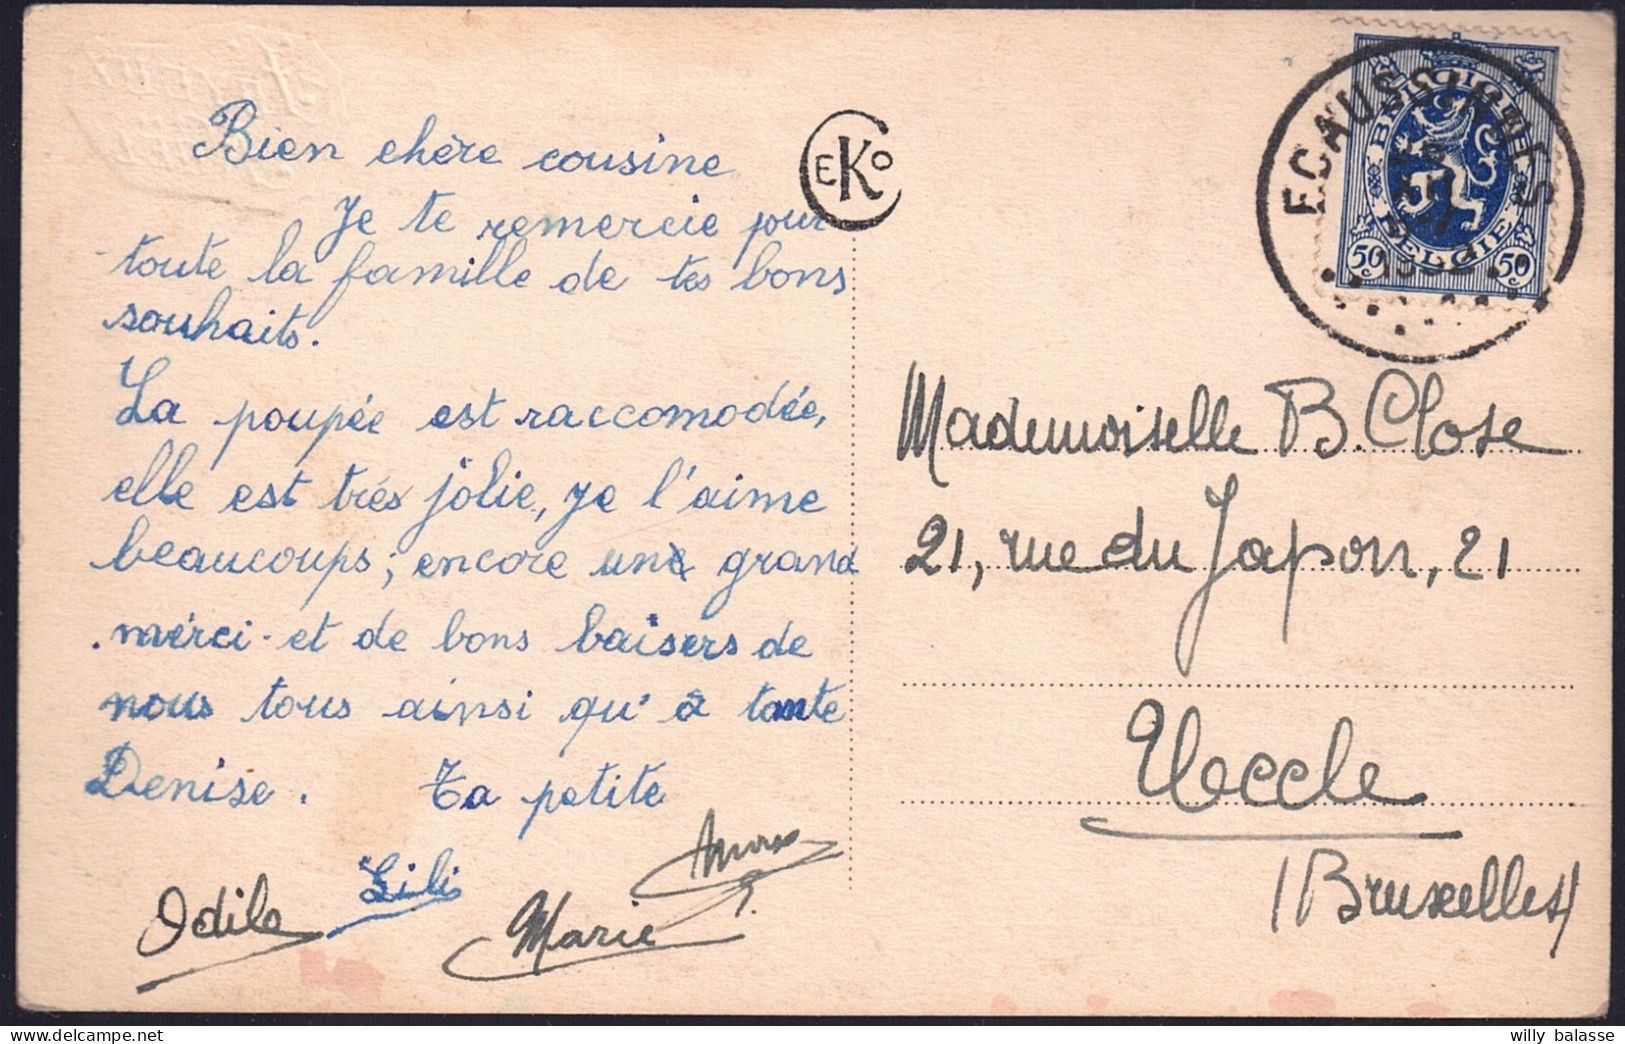 Bien chère cousine
Je te remercie pour
toute la famille de tes bons
souhaits.
La poupée est raccomodée,
elle est très jolie, je l'aime
beaucoups; encore une grand
merci et de bons baisers de
nous tous ainsi qu'à tante
Denise. Ta petite
Lili
Odile
Marie
EKO
ECAUSSINNES
BELGIQUE
BELGIE
50 c
50 c
Mademoiselle B. Close
21, rue du Japon, 21
Uccle
(Bruxelles)
willy balasse